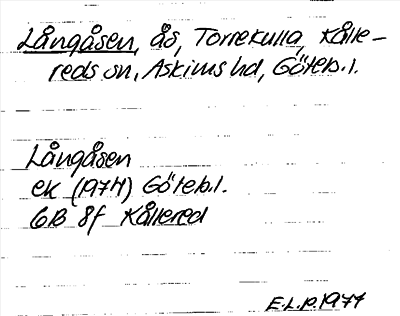 Långåsen, ås, Torrekulla, Kålle-
reds sn, Askims hd, Göteb.l.
Långåsen
ek (1974) Göteb.l.
6B 8f Kållered
E.L.p.1974